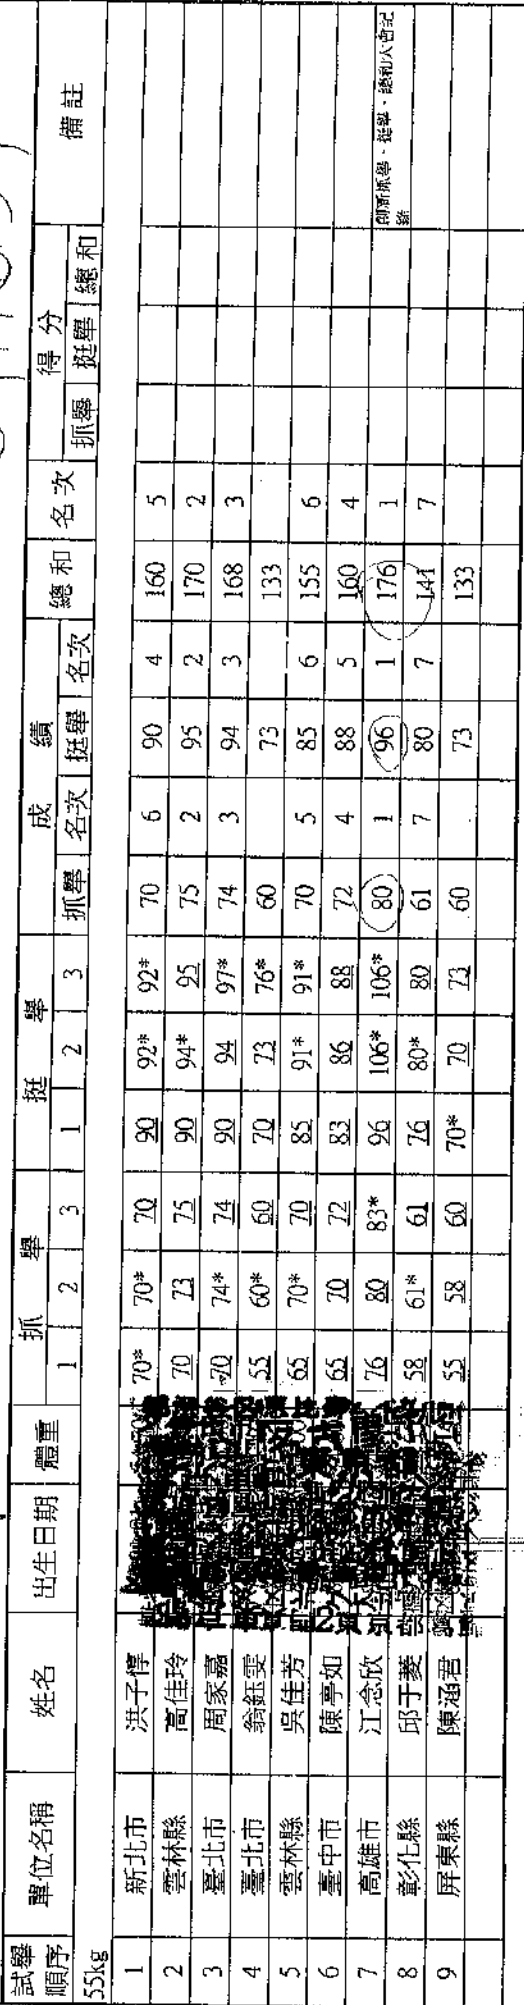 試舉順序 單位名稱 姓名 出生日期 體重 抓舉 挺舉 成績 總和 名次 得分 備註
1 2 3 1 2 3 抓舉 名次 挺舉 名次 抓舉 挺舉 總和
55kg
1 新北市 洪子惇 70* 70* 70 90 92* 92* 70 6 90 4 160 5
2 雲林縣 高佳玲 70 73 75 90 94* 95 75 2 95 2 170 2
3 臺北市 周家嘉 70 74* 74 90 94 97* 74 3 94 3 168 3
4 臺北市 翁鈺雯 55 60* 60 70 73 76* 60 73 133
5 雲林縣 吳佳芳 65 70* 70 85 91* 91* 70 5 85 6 155 6
6 臺中市 陳亭如 65 70 72 83 86 88 72 4 88 5 160 4
7 高雄市 江念欣 76 80 83* 96 106* 106* 80 1 96 1 176 1 創新抓舉、挺舉、總和大會記錄
8 彰化縣 邱于菱 58 61* 61 76 80* 80 61 7 80 7 141 7
9 屏東縣 陳涵君 55 58 60 70* 70 73 60 73 133